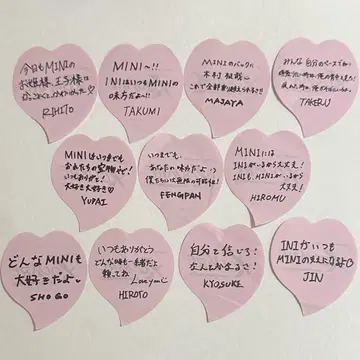 今日もMINIの
お姫様、王子様は
RIHITO
MINI〜!!
INIはいつもMINIの
味方だよ〜!!
TAKUMI
MINIのバックに
木村柾哉
MASAYA
みんな自分のペースで
TAKERU
MINIはいつまでも
僕たちの宝物です!
いつもありがとう!
大好き大好き♡
YUDAI
いつまでも、
あなたの味方だよ
僕たちには無限の可能性が
FENGFAN
MINIには
INIがいるから大丈夫!
INIも、MINIがいるから
大丈夫!
HIROMU
どんなMINIも
大好きだよ
SHOGO
いつもありがとう
どんな時も一緒だよ
頼ってね
Love you
HIROTO
自分を信じろ!
なんとかなるさ!
KYOSUKE
INIがいつも
MINIの支えになるよ
JIN